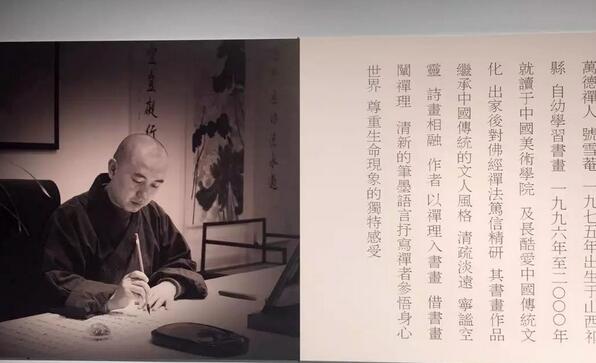 萬德禪人 號雪菴 一九七五年出生于山西祁
縣 自幼學習書畫 一九九六年至二〇〇〇年
就讀于中國美術學院 及長酷愛中國傳統文
化 出家後對佛經禪法篤信精研 其書畫作品
繼承中國傳統的文人風格 清疏淡遠 寧謐空
靈 詩畫相融 作者以禪理入書畫 借書畫
闡禪理 清新的筆墨語言抒寫禪者參悟身心
世界 尊重生命現象的獨特感受